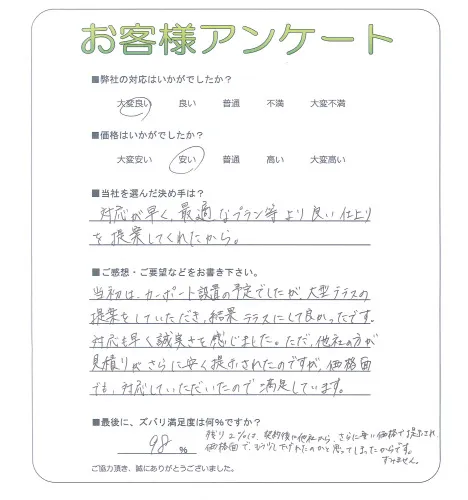 お客様アンケート
■弊社の対応はいかがでしたか？
大変良い 良い 普通 不満 大変不満
■価格はいかがでしたか？
大変安い 安い 普通 高い 大変高い
■当社を選んだ決め手は？
対応が早く、最適なプラン等より良い仕上り
を提案してくれたから。
■ご感想・ご要望などをお書き下さい。
当初は、カーポート設置の予定でしたが、大型テラスの
提案をしていただき、結果テラスにして良かったです。
対応も早く誠実さを感じました。ただ、他社の方が
見積りがさらに安く提示されたのですが、価格面
でも、対応していただいたので満足しています。
■最後に、ズバリ満足度は何％ですか？
98 ％
残り2%は、契約後に他社から、さらに安い価格で提示され
価格面で、もう少し下げれたのかと思ってしまったからです。
すみません。
ご協力頂き、誠にありがとうございました。